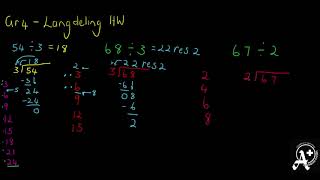 Gr 4 - Langdeling HW
54 ÷ 3 = 18
18
3 54
-3
24
-24
0
3
6
9
12
15
18
21
24
68 ÷ 3 = 22 res 2
22 res 2
3 68
-6
08
-6
2
2
3
6
9
12
15
67 ÷ 2
2 67
2
4
6
8
A+